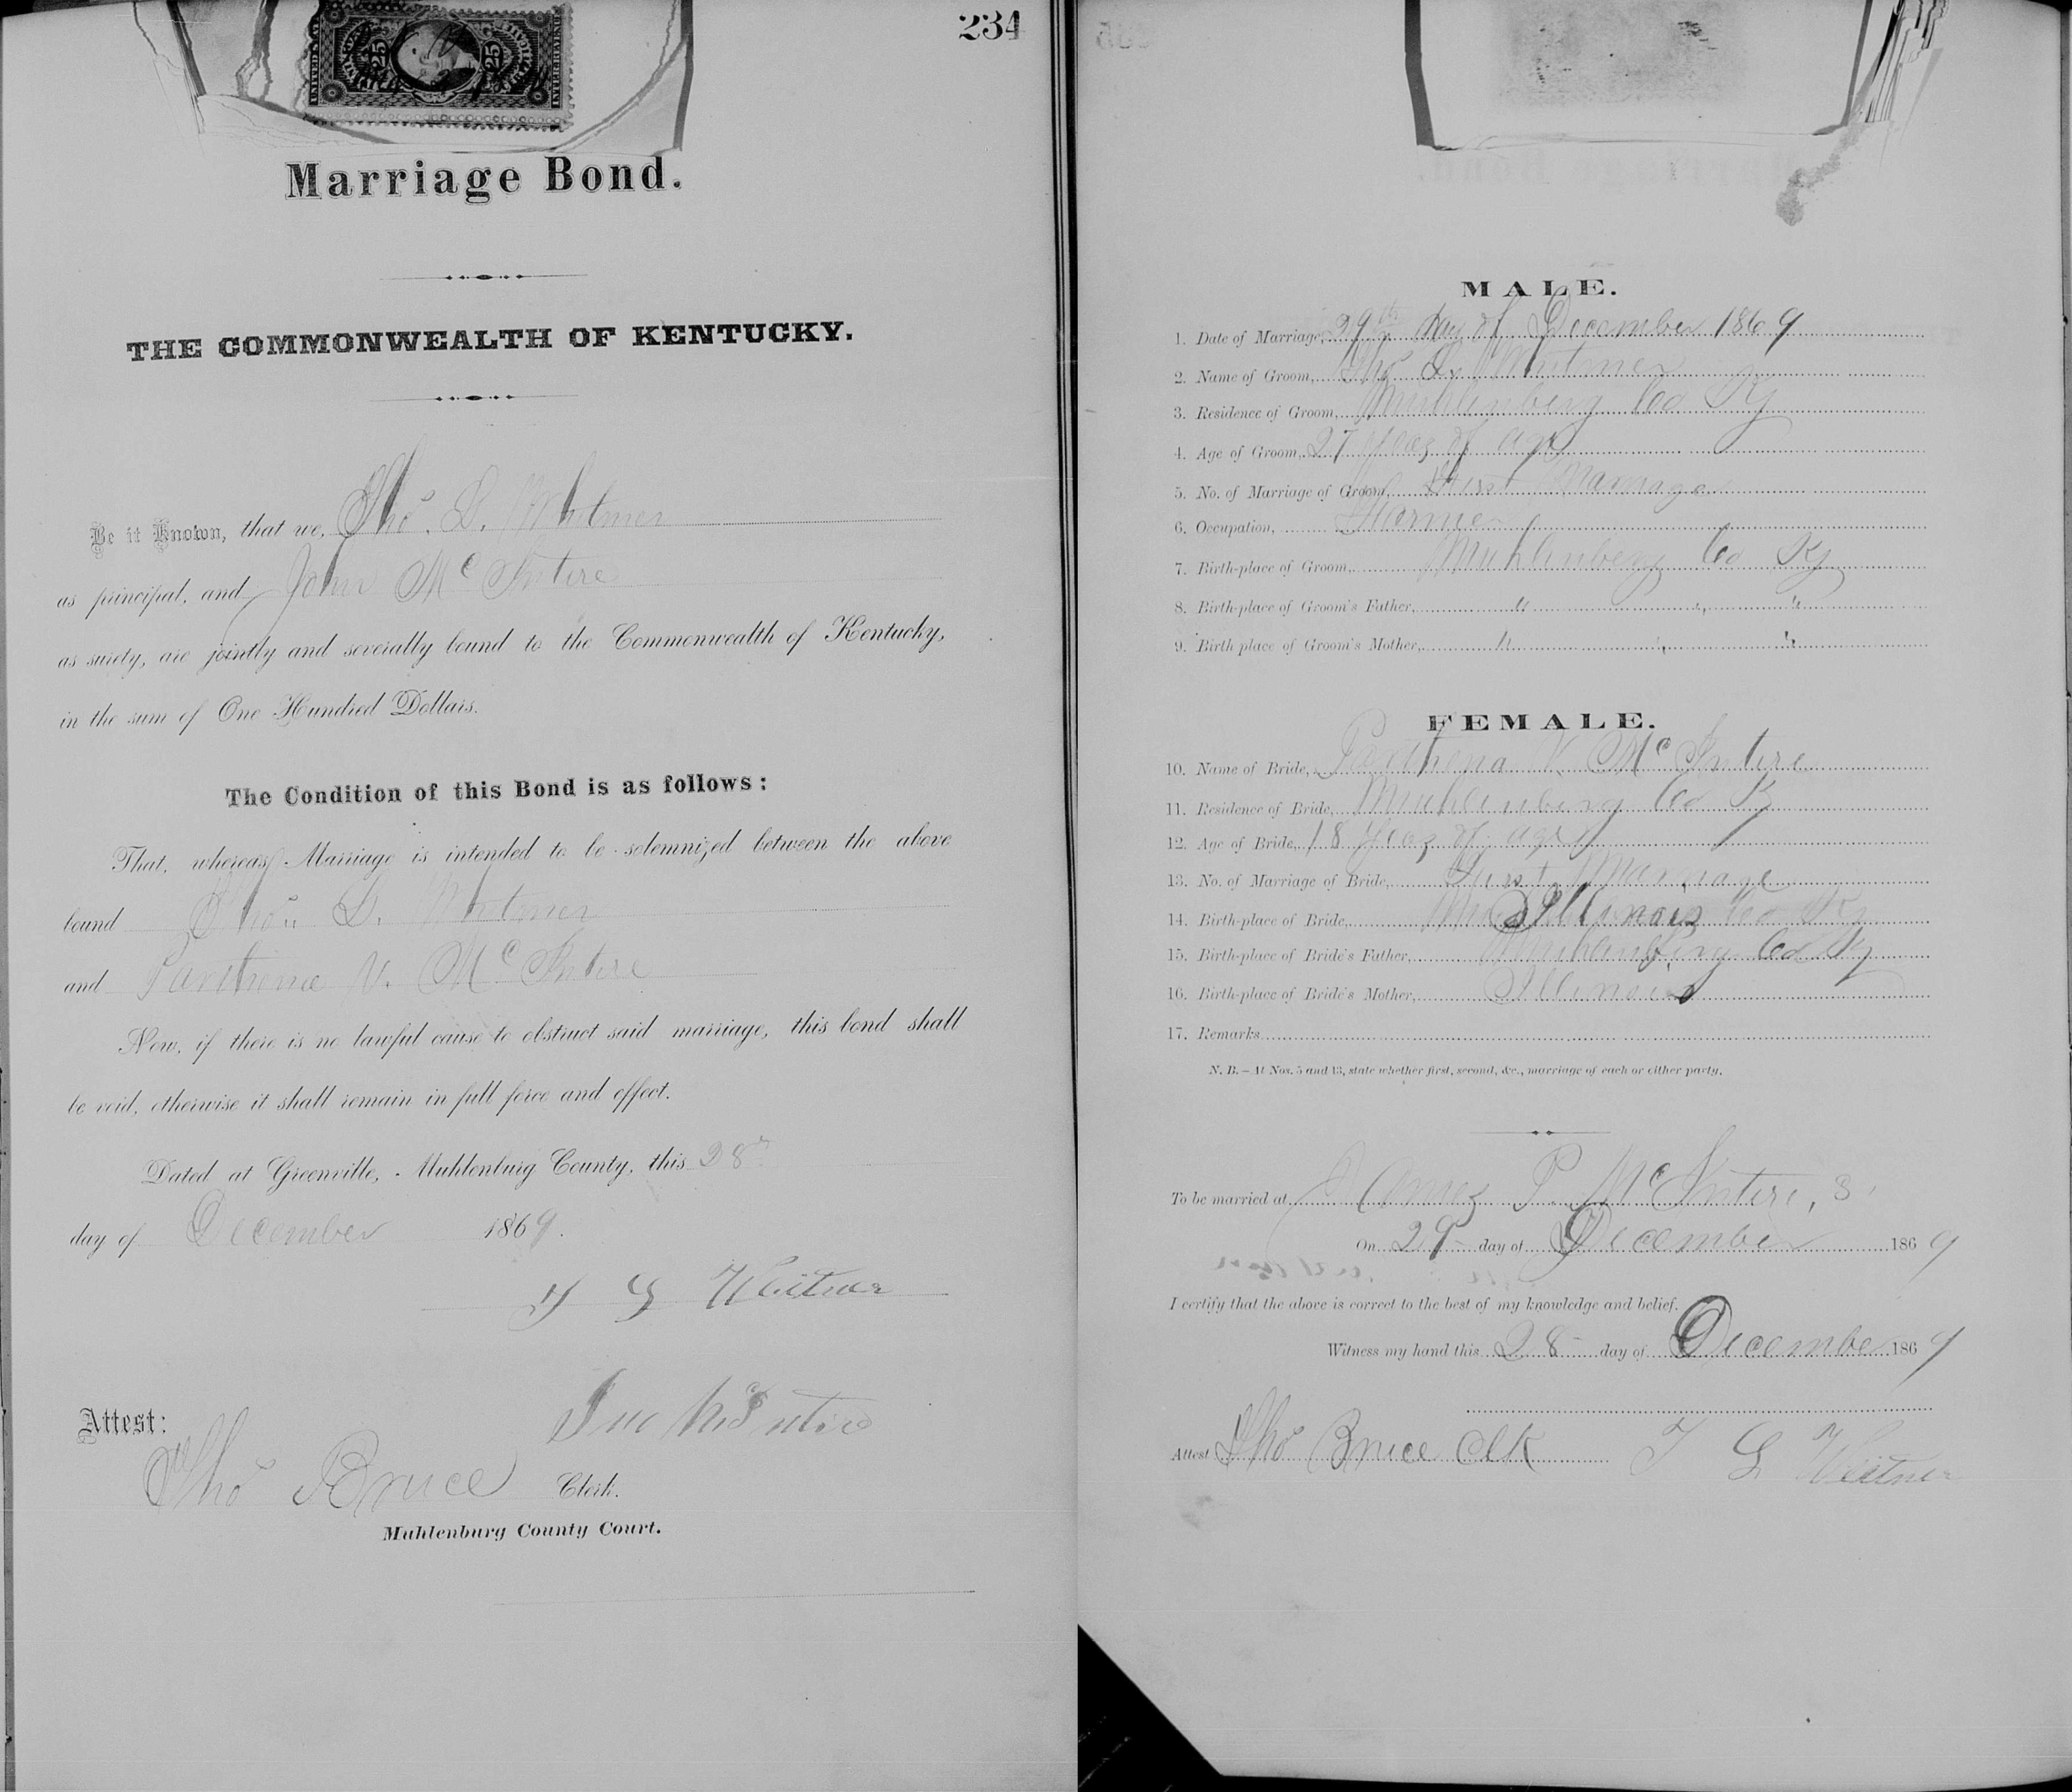 234
25 25
Marriage Bond.
THE COMMONWEALTH OF KENTUCKY.
Be it Known, that we, Thos. L. Whitmer
as principal, and John McIntire
as surety, are jointly and severally bound to the Commonwealth of Kentucky,
in the sum of One Hundred Dollars.
The Condition of this Bond is as follows:
That, whereas Marriage is intended to be solemnized between the above
bound Thos. L. Whitmer
and Parthena V. McIntire
Now, if there is no lawful cause to obstruct said marriage, this bond shall
be void, otherwise it shall remain in full force and effect.
Dated at Greenville, Muhlenburg County, this 28th
day of December 1869.
T L Whitmer
Jno McIntire
Attest:
Thos Bruce Clerk.
Muhlenburg County Court.
MALE.
1. Date of Marriage, 29th day of December 1869
2. Name of Groom, Thos L. Whitmer
3. Residence of Groom, Muhlenberg Co Ky
4. Age of Groom, 27 years of age
5. No. of Marriage of Groom, First Marriage
6. Occupation, Farmer
7. Birth-place of Groom, Muhlenberg Co Ky
8. Birth-place of Groom's Father, " " "
9. Birth place of Groom's Mother, " " "
FEMALE.
10. Name of Bride, Parthena V. McIntire
11. Residence of Bride, Muhlenberg Co Ky
12. Age of Bride, 18 years of age
13. No. of Marriage of Bride, First Marriage
14. Birth-place of Bride, Illinois
15. Birth-place of Bride's Father, Muhlenberg Co Ky
16. Birth-place of Bride's Mother, Illinois
17. Remarks
N. B. – At Nos. 5 and 13, state whether first, second, &c., marriage of each or either party.
To be married at James P. McIntire,s
On 29 day of December 1869
I certify that the above is correct to the best of my knowledge and belief.
Witness my hand this 28 day of December 1869
Attest Thos Bruce Clk T L Whitmer